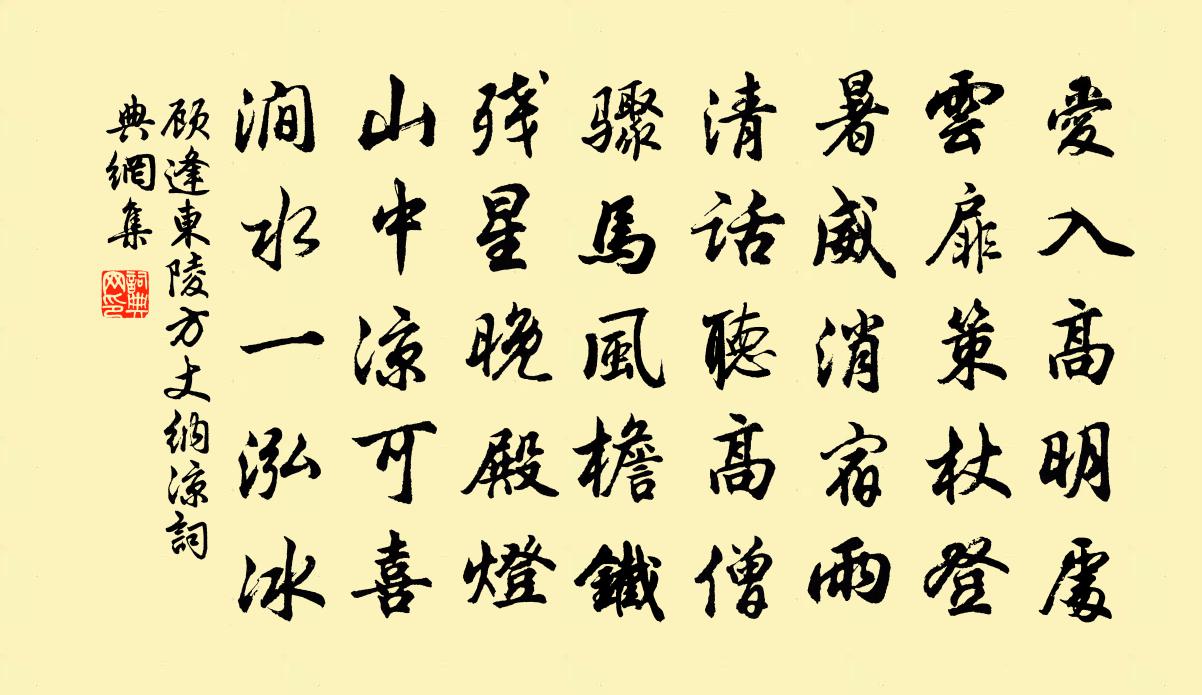 愛入高明處
雲扉策杖登
暑威消宿雨
清話聽高僧
驟馬風檐鐵
残星晚殿燈
山中凉可喜
澗水一泓冰
顾逢東陵方丈纳凉詞
典網集
詞典
网印